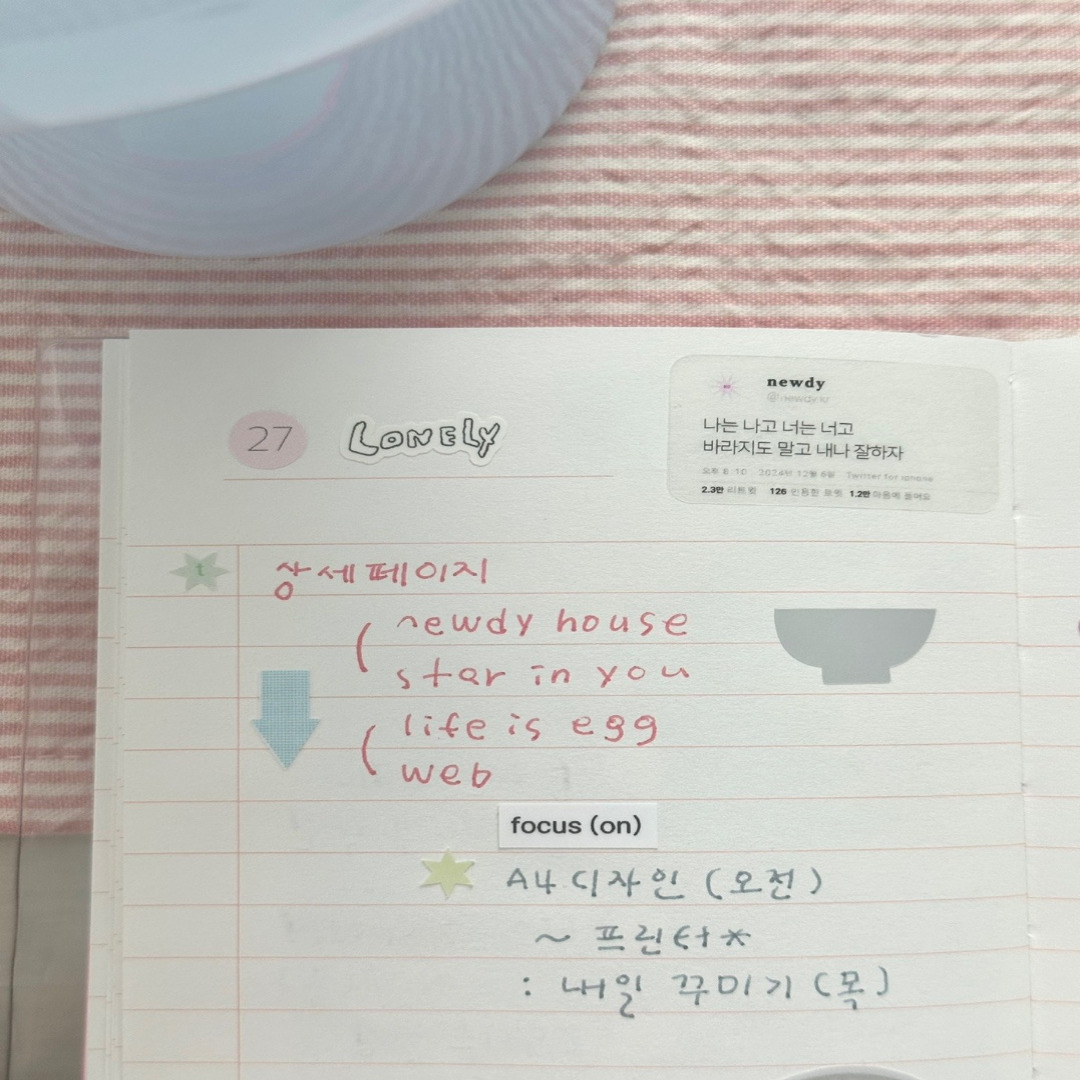 27 LONELY
newdy
@newdy.kr
나는 나고 너는 너고
바라지도 말고 내나 잘하자
오후 8:10 · 2024년 12월 6일 · Twitter for iphone
2.3만 리트윗 126 인용한 트윗 1.2만 마음에 들어요
t
상세페이지
newdy house
star in you
life is egg
web
focus (on)
A4 디자인 (오전)
~ 프린터*
: 내일 꾸미기 (목)